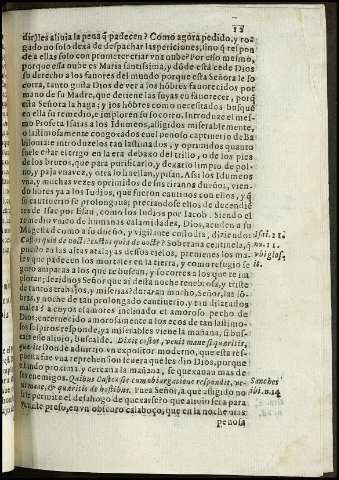 15
dir)les aliuia la pena q̃ padecen? Como agora pedido, y ro-
gado no solo dexa de despachar las peticiones, sino q̃ respon
de a ellas solo con prometer criar vna nube? Por esso mesmo,
porque essa nube es Maria santissima, y dõde està cede Dios
su derecho a los fauores del mundo porque esta Señora le so
corra, tanto gusta Dios de ver a los hõbres fauorecidos por
mano de su Madre, que detiene las suyas en fauorecer, porq̃
esta Señora la haga; y los hõbres como necesitados busquẽ
en ella su remedio, e imploren su socorro. Introduce el mes-
mo Profeta Isaias a los Idumeos, afligidos miserablemente,
o lastimosamente congoxados en el penoso captiuerio de Ba
bilonia: introduzelos tan lastimados, y oprimidos quanto
suele estar el trigo en la era debaxo del trillo, o de los pies
de los brutos, que para purificarlo, y dexarlo limpio de pol-
uo, y paja vna vez, y otra lo huellan, y pisan. Assi los Idumeos
vna, y muchas vezes oprimidos de sus tiranos dueños, vien-
do libres ya a los Iudios, que fueron cautiuos con ellos, y q̃
su cautiuerio se prolongaua; preciandose ellos de decendiẽ
tes de Isac por Esau, como los Iudios por Iacob. Siendo el
remedio vnico de humanas calamidades, Dios, acuden a su
Magestad como a su dueño, y vigilante custodia, diziendo:
Custos quid de nocte? Custos quid de nocte? Soberana centinela, q̃
puesto en las altas atalayas dessos cielos, preuienes los ma-
les que padecen los mortales en la tierra, y como refugio se
guro amparas a los que te buscan, y socorres a los que te im
ploran; dezidnos Señor que ai desta noche tenebrosa, y triste
de tantos trabajos, y miserias? durarán mucho, Señor, las sõ-
bras, y noche de tan prolongado cautiuerio, y tan dilatados
males? a cuyos clamores inclinado el amoroso pecho de
Dios; enternecido amorosamente a los ecos de tan lastimo-
sos suspiros responde, ya miserables viene la mañana, si bus-
cais esse aliuio, buscalde. Venit mane, & nox, si quæritis,
quærite. Donde aduirtio vn expositor moderno, que esta res-
puesta fue vna reprehension seuera que les dio Dios, porque
siendo proxima, y cercana la mañana, se quexauan mas de
sus enemigos. Quibus Custos sic cum obiurgatione respondit, ve-
nit mane, & quæritis de hostibus. Pues Señora, que al afligido no
le permite el desahogo de quexarse? o que aliuio serà para
vn triste preso, en vn obscuro calabozo, que en la noche mas
penosa
Isai. 21.
nu. 11.
vbi glos.
Sanches
ibi. n. 14